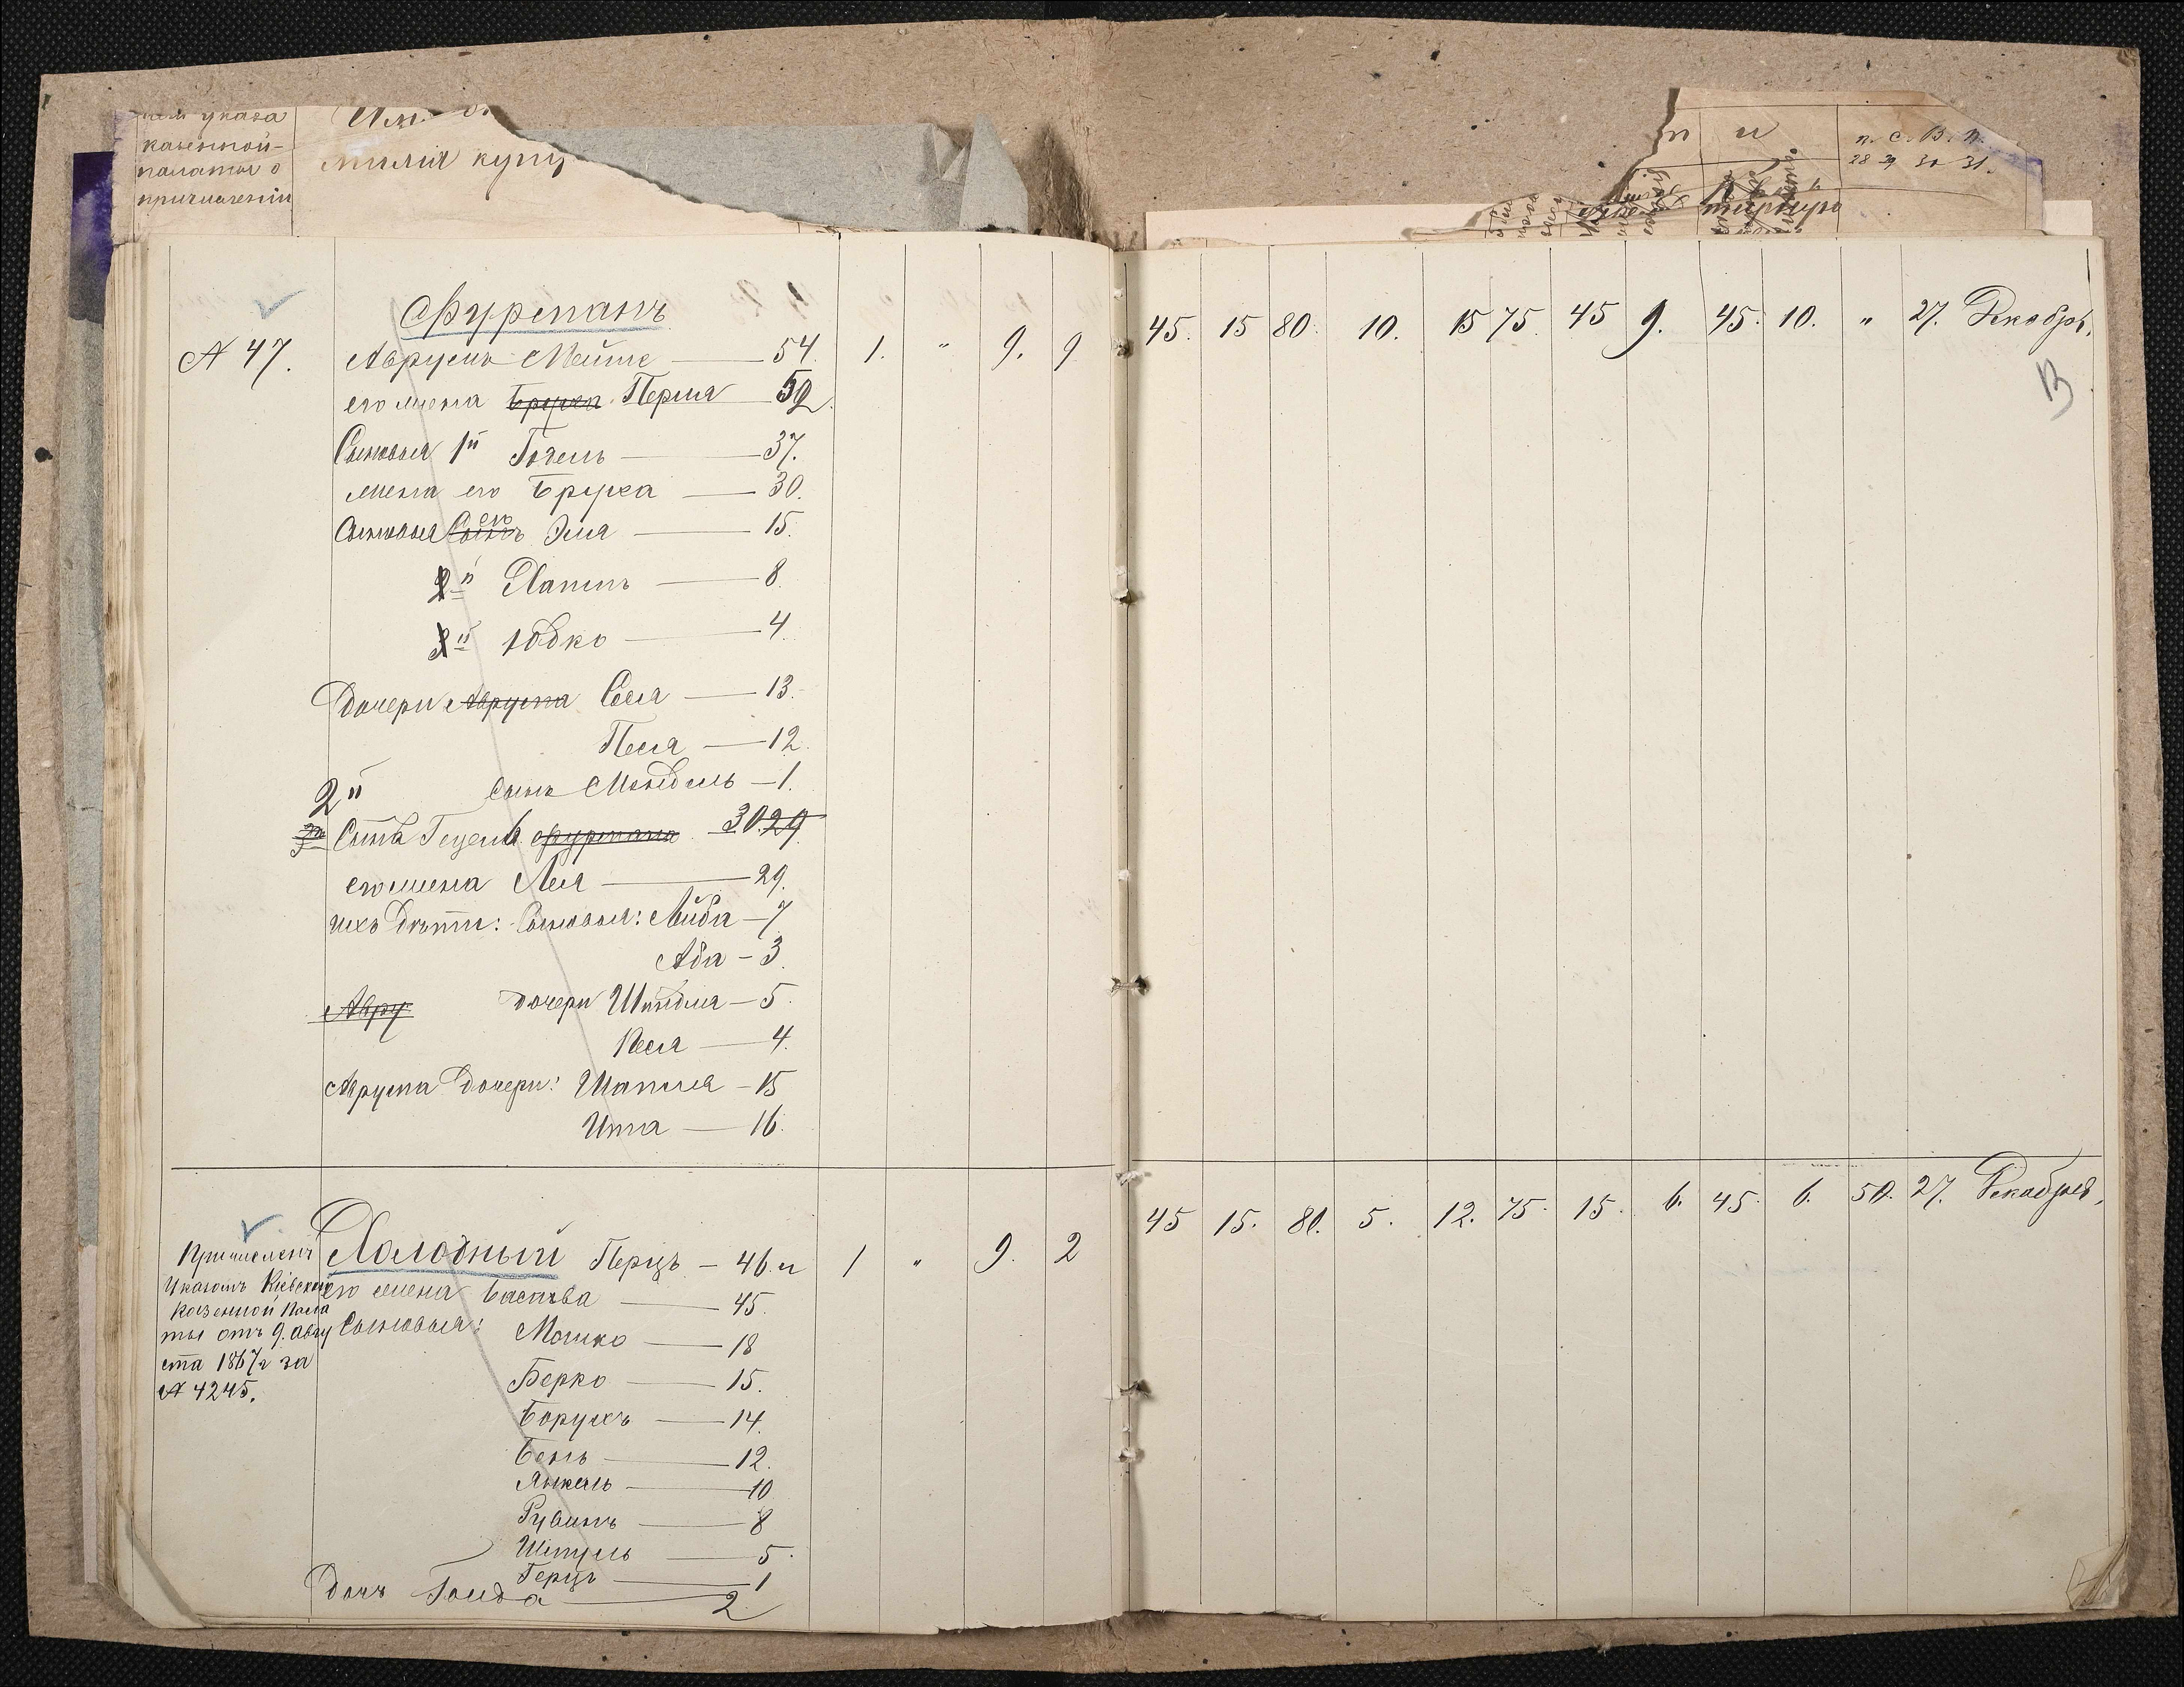 указа
казенной
палаты о
причислении
милія купц
п и
п. с. В. п.
28 29 30 31.
Фурманъ
№ 47.
Аврумъ Мейше — 54. 1. " 9. 9 45. 15 80. 10. 15 75. 45 9. 45. 10. " 27. Декабря.
его жена Бруха Перля — 52
Сыновья 1й Гогель — 37.
жена его Бруха — 30.
Сыновья Сынъ его Эля — 15.
2й Хаимъ — 8.
3й Юдко — 4.
Дочери Аврума Сося — 13.
Песя — 12.
2й Сынъ Мендель — 1.
Сынъ Гецель Фурмана 30. 29
его жена Лея — 29.
ихъ дѣти: Сыновья: Лейба — 7
Аба — 3.
Авру дочери Шейндля — 5.
Кося — 4.
Аврума дочери: Шапсля — 15
Ита — 16.
Причисленъ
Указомъ Кіевской
Казенной Пала
ты отъ 9. Авгу
ста 1867г за
№ 4245.
Холодный Перцъ — 46. и 1 " 9. 2 45 15. 80. 5. 12. 75. 15. 6. 45. 6. 50. 27. Декабря,
его жена Басшва — 45.
Сыновья: Мошко — 18
Берко — 15.
Борухъ — 14.
Бень — 12.
Янкель — 10
Рувинъ — 8
Шмуль — 5.
Герцъ — 1
Дочь Голда — 2